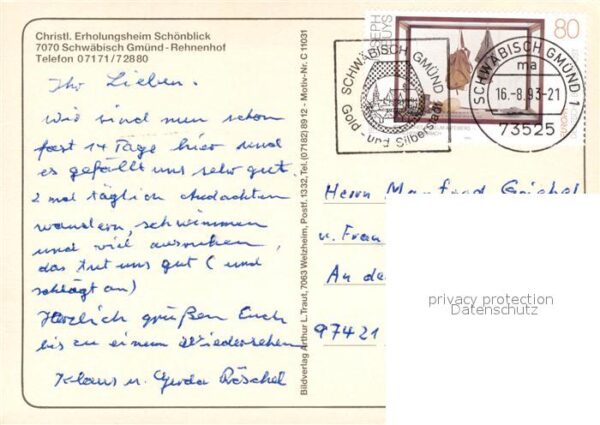 Christl. Erholungsheim Schönblick
7070 Schwäbisch Gmünd - Rehnenhof
Telefon 07171/72880
Ihr Lieben.
Wir sind nun schon
fast 14 Tage hier und
es gefällt uns sehr gut
2 mal täglich Andachten
wandern, schwimmen
und viel ausruhen,
das tut uns gut (und
schlägt an)
Herzlich grüßen Euch
bis zu einem Wiedersehen
Klaus u. Gerda Röschel
Bildverlag Arthur L. Traut, 7063 Welzheim, Postf. 1332, Tel. (07182) 8912 - Motiv-Nr. C 11031
SCHWÄBISCH GMÜND
Gold - und Silberstadt
80
SCHWÄBISCH GMÜND 1
ma
16.-8.93-21
73525
Herrn Manfred
u. Frau
An de
97421
privacy protection
Datenschutz